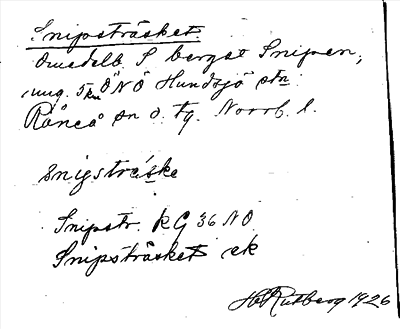 Snipsträsket.
Omedelb. S berget Snipen,
ung. 5 km ÖNÖ Hundsjö stn
Råneå sn o. tg. Norrb. l.
snipsträske
Snipstr. KG 36 NO
Snipsträsket ek
H Rutberg 1926